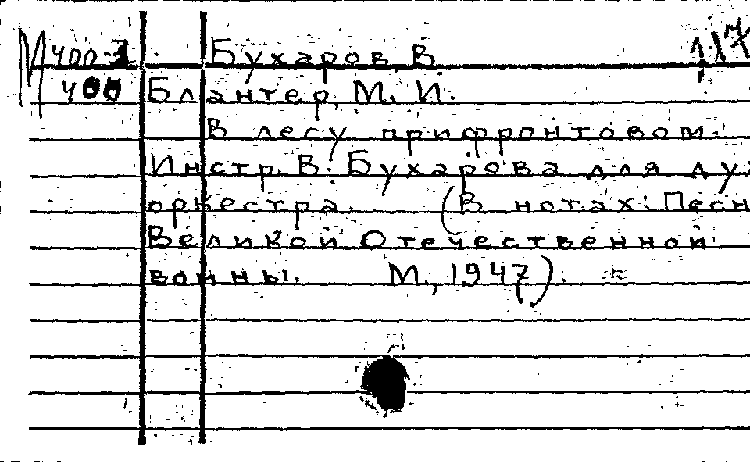 М 400-1 Бухаров В. 117
400 Блантер, М. И.
В лесу прифронтовом.
Инстр. В. Бухарова для ду
оркестра. (В нотах: Песн
Великой Отечественной
войны. М., 1947).